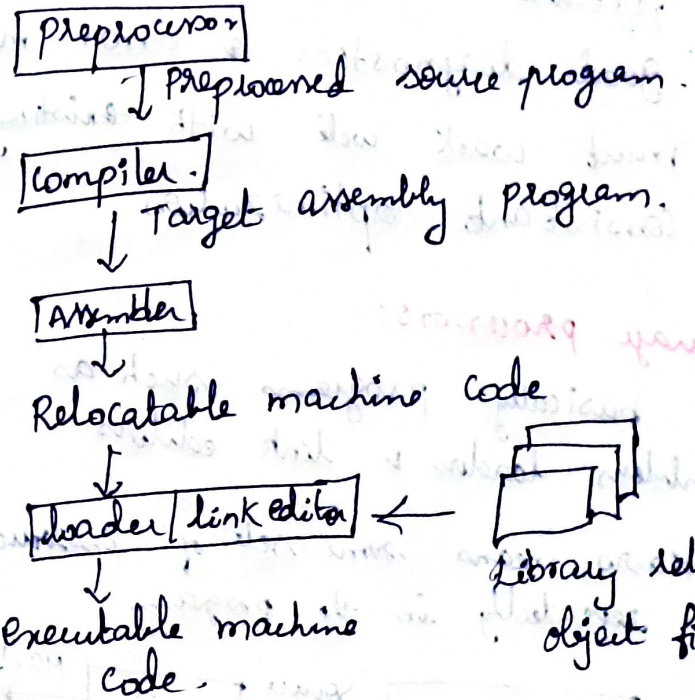 preprocessor
preprocessed source program.
compiler.
Target assembly program.
Assembler
Relocatable machine code
loader/link editor
Library
object
executable machine
code.